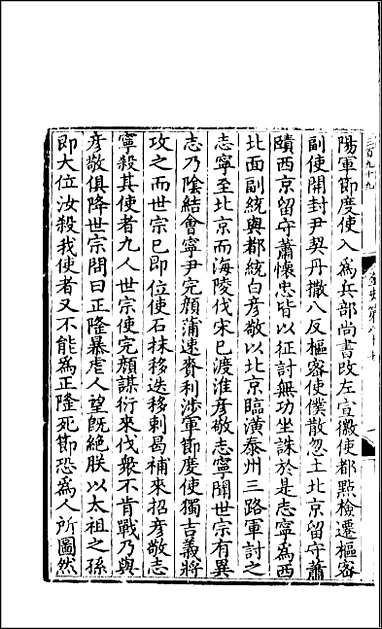 陽軍節度使入為兵部尚書改左宣徽使都點檢遷樞密
副使開封尹契丹撒八反樞密使僕散忽土北京留守蕭
賾西京留守蕭懷忠皆以征討無功坐誅於是志寧為西
北面副統與都統白彥敬以北京臨潢泰州三路軍討之
志寧至北京而海陵伐宋已渡淮彥敬志寧聞世宗有異
志乃陰結會寧尹完顏蒲速賚利涉軍節度使獨吉義將
攻之而世宗已即位使石抹移迭移剌曷補來招彥敬志
寧殺其使者九人世宗使完顏謀衍來伐衆不肯戰乃與
彥敬俱降世宗問曰正隆暴虐人望既絕朕以太祖之孫
即大位汝殺我使者又不能為正隆死節恐為人所圖然